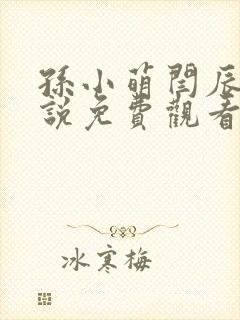 孫小萌閆辰
說免費觀看
冰寒梅